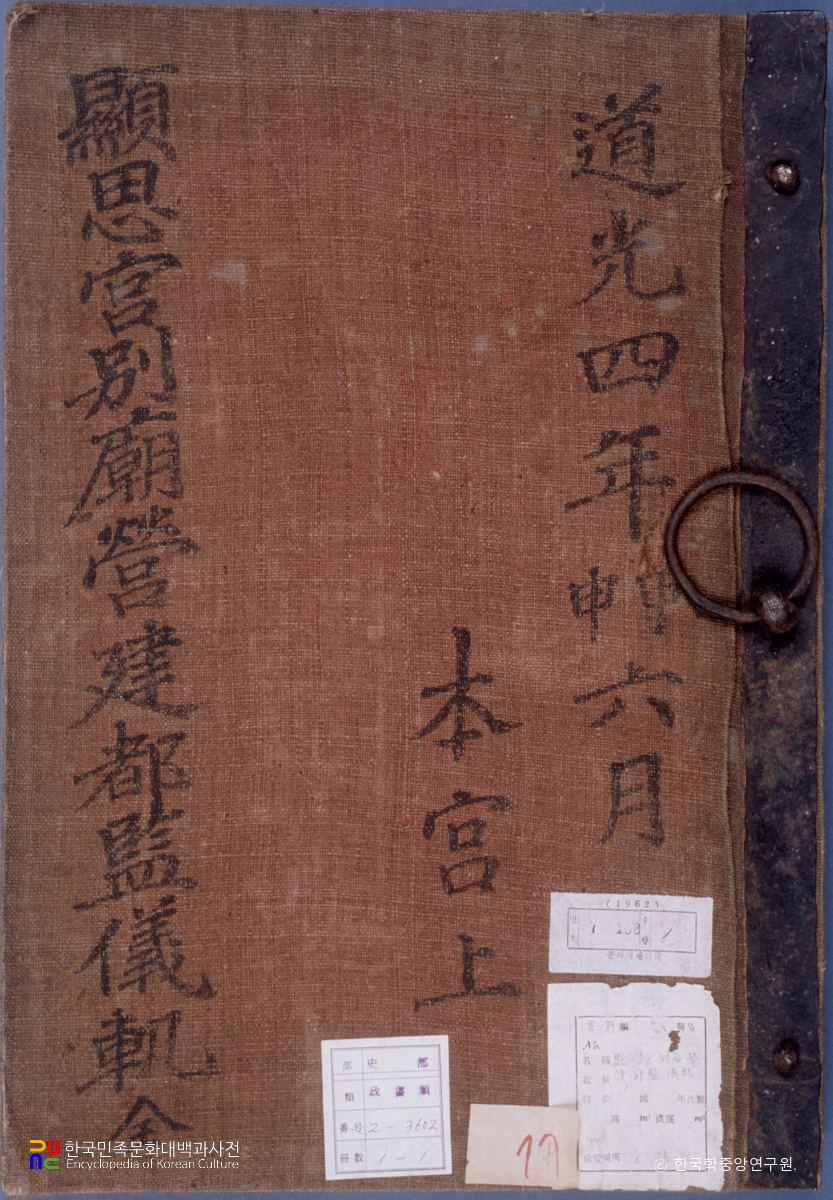 道光四年甲申六月
本宮上
顯思宮別廟營建都監儀軌全
(1962)
部 史部
類 政書類
番号 2-3602
冊数 1-1
77
No.
名稱
한국민족문화대백과사전
Encyclopedia of Korean Culture
© 한국학중앙연구원